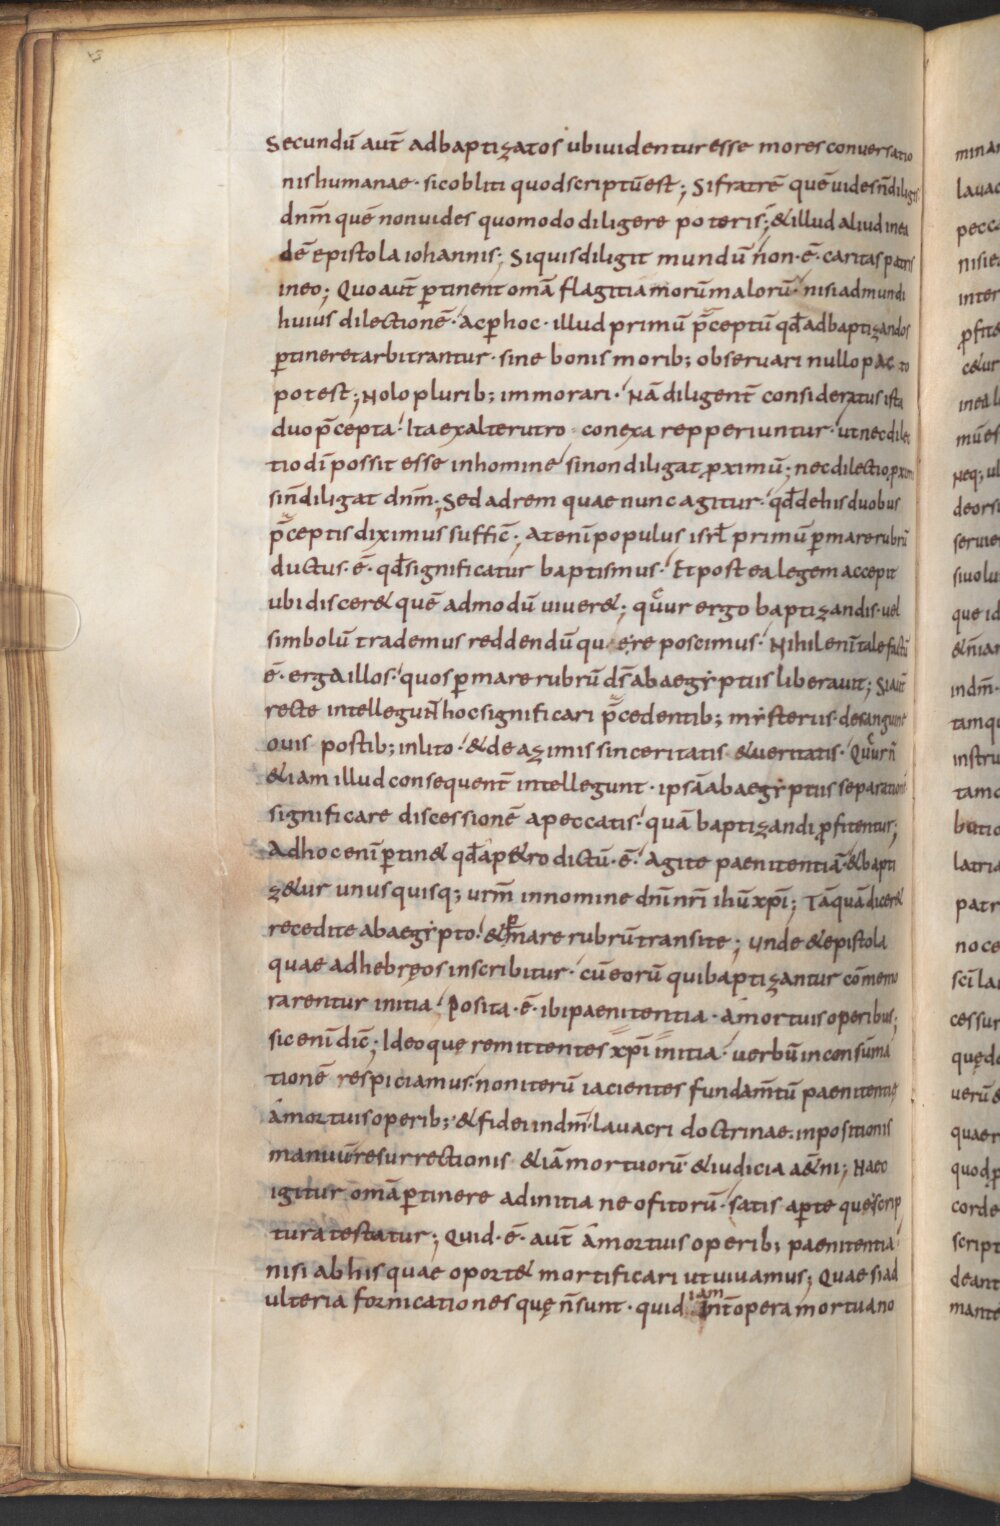 Secundū aut̄ adbaptizatos ubiuidentur esse mores conuersatio
nishumanae · sicobliti quodscriptūest ; Sifratrē quēuidesn̄diligis
dn̄m quēnonuides quomodo diligere poteris ; & illud aliud inea
dē epistola iohannis ; Siquisdiligit mundū non · ē · caritas patris
ineo ; Quoaut̄ ꝑtinent om̄a flagitia morūmalorū · nisiadmundi
huius dilectionē · acꝑhoc · illud primū p̄ceptū qđadbaptizandos
ꝑtineretarbitrantur · sine bonis morib; obseruari nullo pacto
potest ; Nolo plurib; immorari · Nā diligent̄ consideratus ista
duo p̄cepta · Ita exalterutro conexa repperiuntur · utnecdilec
tio dī possit esse inhomine sinon diligat ꝓximū ; nec dilectio ꝓximi
sin̄diligat dn̄m ; Sed adrem quae nunc agitur · qđdehis duobus
p̄ceptis diximus suffic̄ ; Atenī populus isrł primū ꝑmarerubrū
ductus · ē · qđsignificatur baptismus · Et postea legem accepit
ubi discer& quē admodū uiuer& ; qur ergo baptizandis · uel
simbolū trademus reddendū qu ere poscimus · Nihil enī tale factū
ē · ergaillos · quosꝑmare rubrū dsabaegyptiis liberauit ; Siaut̄
recte intellegunt hocsignificari p̄cedentib; mysteriis · desanguine
ouis postib; inlito · & de azimis sinceritatis & ueritatis · Qur n̄
& iam illud consequent̄ intellegunt · ipsāabaegyptiis separationē
significare discessionē apeccatis · quā baptizandi ꝓfitentur ;
Adhoc enī ꝑtin& qđap&ro dictū · ē · Agite paenitentiā · & bapti
z&ur unusquisq; urm̄ innomine dn̄i nr̄i ihū xp̄i ; Tāquādicer&
recedite abaegypto · &ꝑmare rubrūtransite ; Unde & epistola
quae adhebręos inscribitur · cūeorū quibaptizantur cōmemo
rarentur initia · Posita · ē · ibipaenitentia · amortuis operibus ;
sic enī dic̄ ; Ideoque remittentes xp̄i initia · uerbū inconsūma
tionē respiciamus · noniterū iacientes fundam̄tū paenitentię
amortuisoperib; · & fidei indm̄ · lauacri doctrinae · inpositionis
manuū resurrectionis &iā mortuorū & iudicia a&ni ; Haec
igitur om̄a ꝑtinere adinitia ne ofitorū · satis aꝑte quę scrip
tura testatur ; Quid · ē · aut̄ amortuis operib; paenitentia
nisi abhis quae oport& mortificari utuiuamus ; Quae siad
ulteria fornicationes quę n̄sunt · quid iam Int̄ opera mortuano